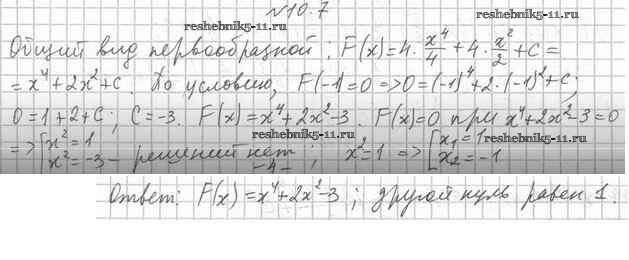 №10.7
reshebnik5-11.ru reshebnik5-11.ru
Общий вид первообразной: F(x)=4·x⁴/4+4·x²/2+C=
=x⁴+2x²+C. По условию, F(-1)=0 => 0=(-1)⁴+2·(-1)²+C;
0=1+2+C; C=-3. F(x)=x⁴+2x²-3. F(x)=0 при x⁴+2x²-3=0
reshebnik5-11.ru
=> [x²=1 x²=-3 - решений нет; x²=1 => [x₁=1 x₂=-1
reshebnik5-11.ru
-4-
Ответ: F(x)=x⁴+2x²-3; другой нуль равен 1.